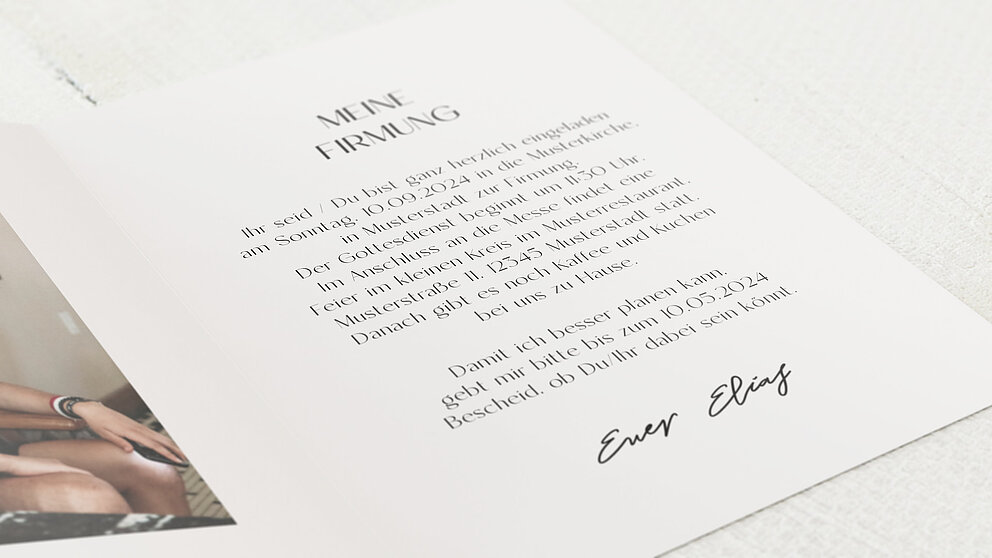 MEINE
FIRMUNG
Ihr seid / Du bist ganz herzlich eingeladen
am Sonntag, 10.09.2024 in die Musterkirche,
in Musterstadt zur Firmung.
Der Gottesdienst beginnt um 11:30 Uhr.
Im Anschluss an die Messe findet eine
Feier im kleinen Kreis im Musterrestaurant,
Musterstraße 11, 12345 Musterstadt statt.
Danach gibt es noch Kaffee und Kuchen
bei uns zu Hause.
Damit ich besser planen kann,
gebt mir bitte bis zum 10.05.2024
Bescheid, ob Du/Ihr dabei sein könnt.
Euer Elias